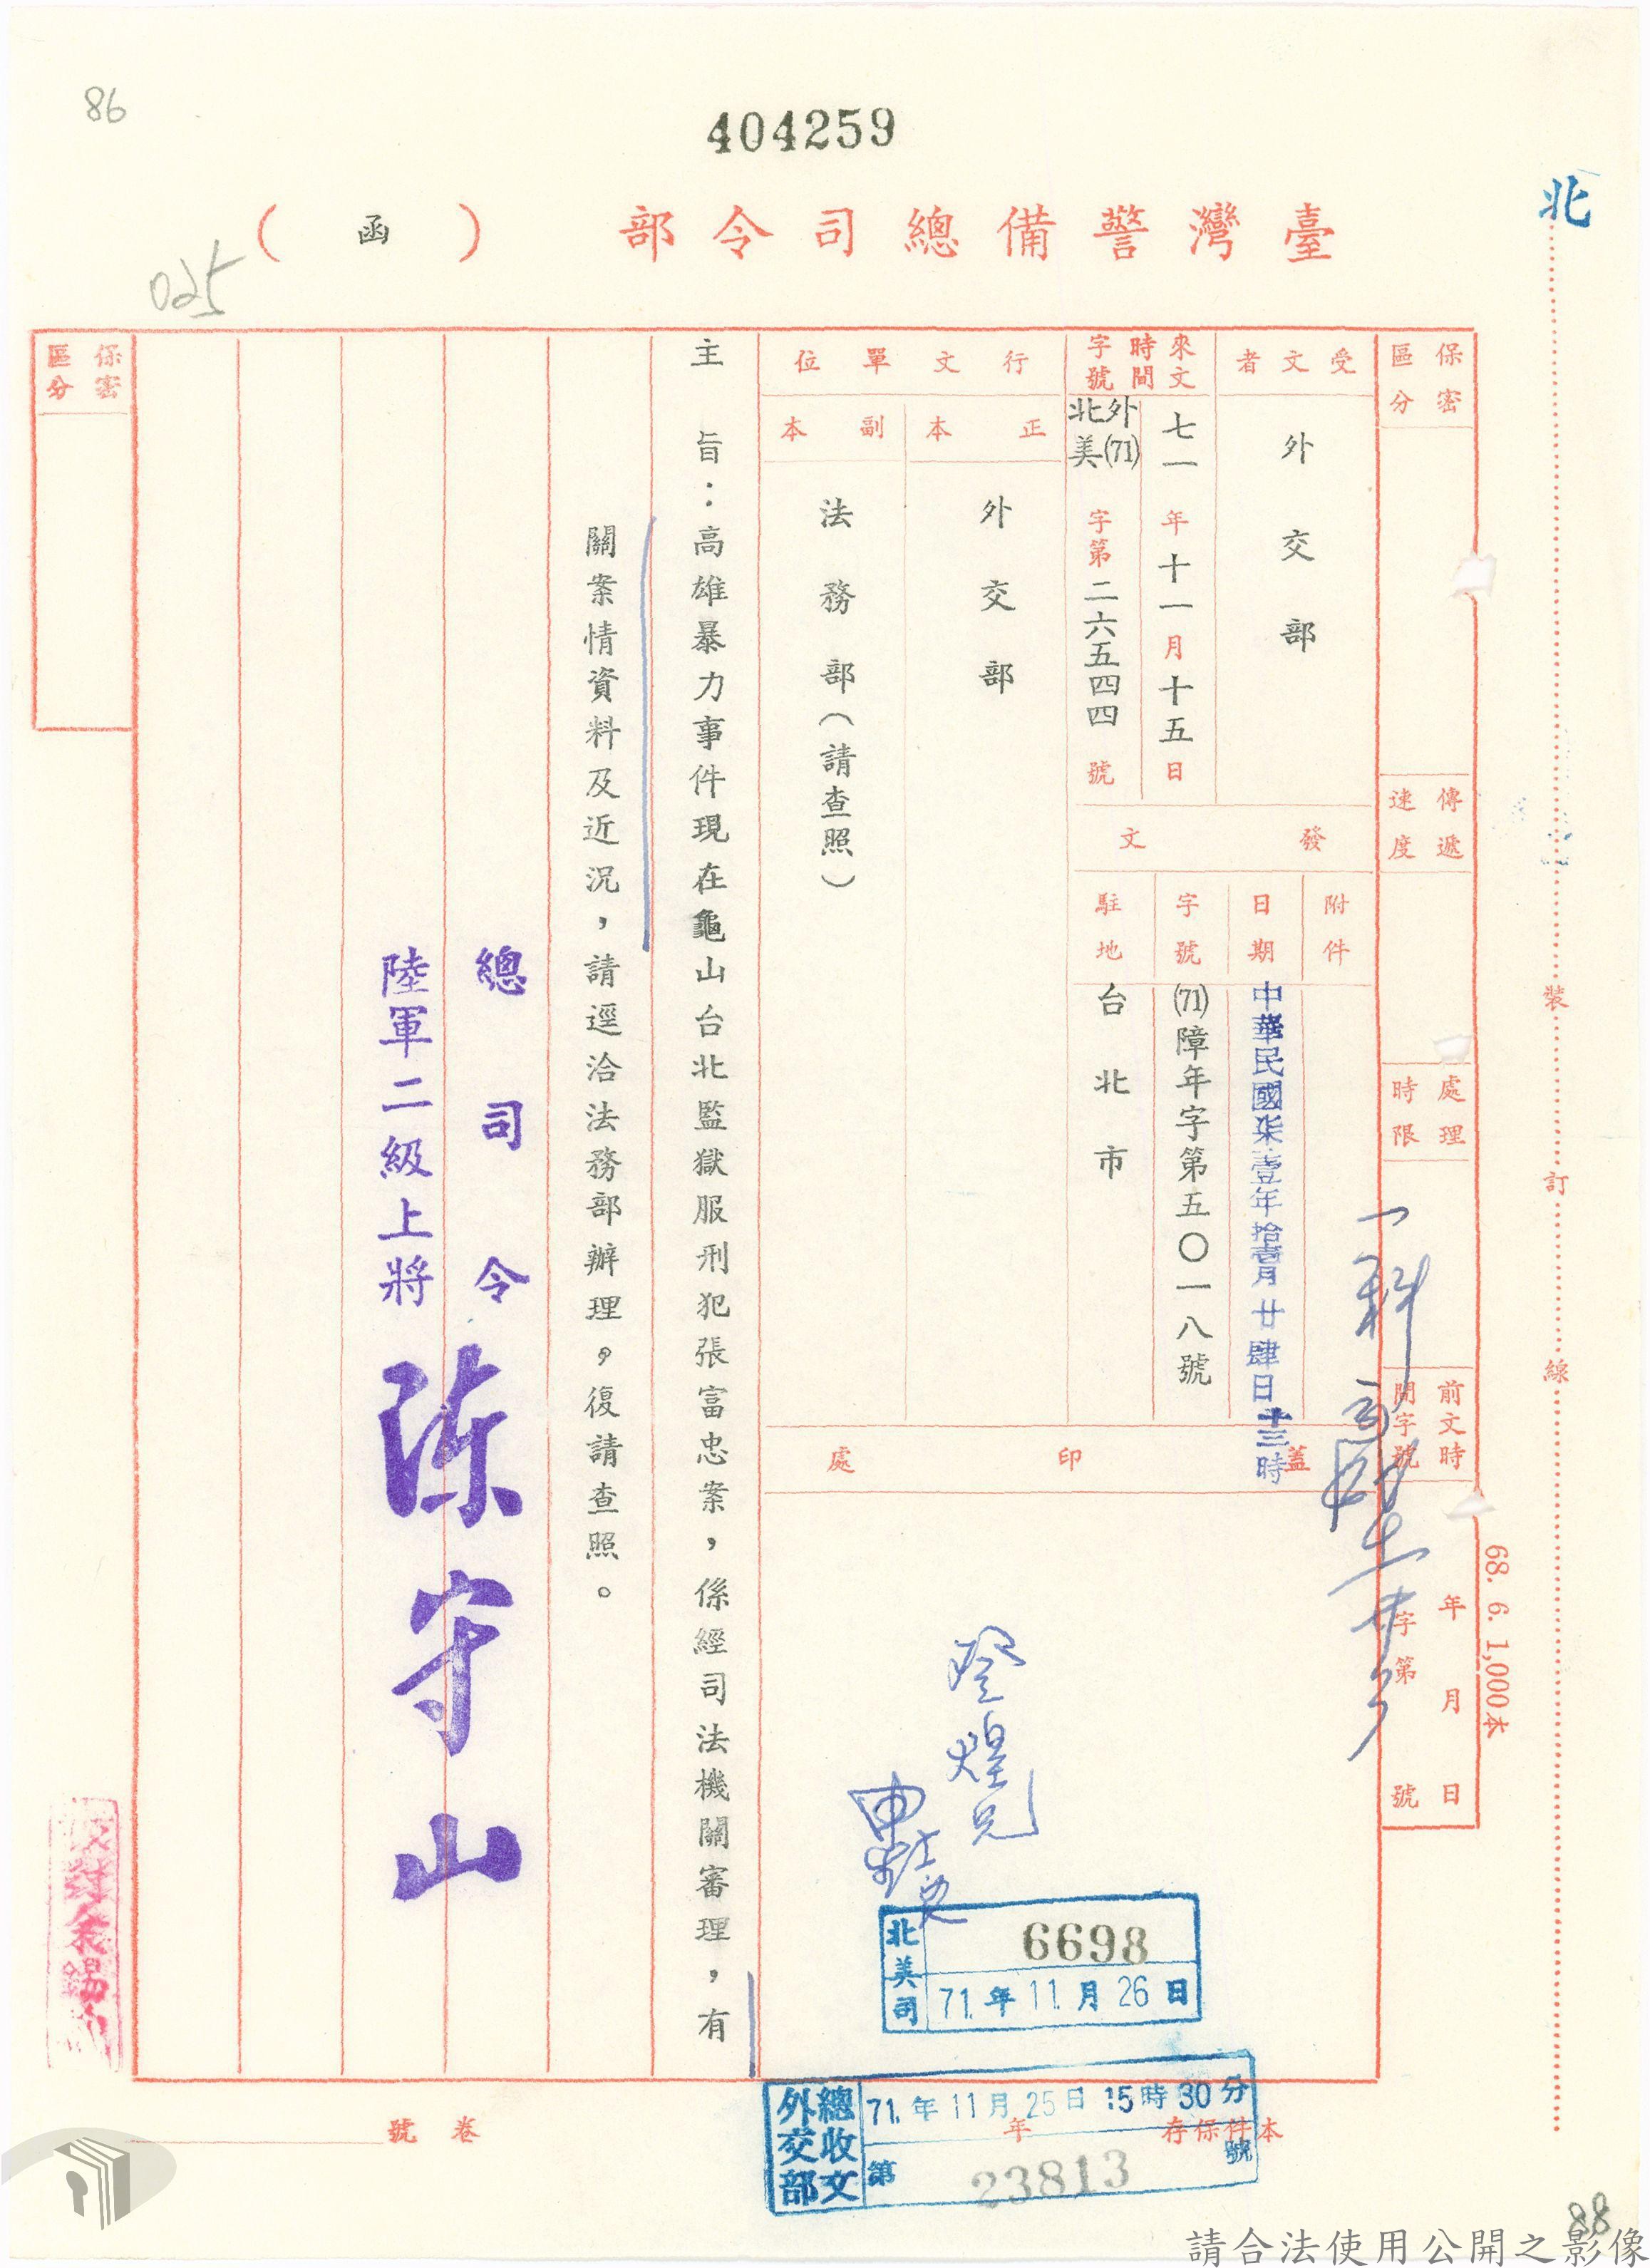 86
404259
臺灣警備總司令部（函）
025
北
保密區分
傳遞速度
處理時限
前文時間字號
年月日
字第號
68. 6. 1,000本
裝訂線
受文者
外交部
來文時間字號
七一年十一月十五日
外(71)北美字第二六五四四號
發文
附件
日期
中華民國柒壹年拾壹月廿肆日十三時
字號
(71)障年字第五〇一八號
駐地
台北市
行文單位
正本
外交部
副本
法務部（請查照）
蓋印處
一科
登煌兄
北美司
6698
71.年11.月26日
主旨：高雄暴力事件現在龜山台北監獄服刑犯張富忠案，係經司法機關審理，有
關案情資料及近況，請逕洽法務部辦理，復請查照。
總司令
陸軍二級上將陳守山
保密區分
外交部總收文
71.年11月25日15時30分
第23813號
本件保存年
卷號
88
請合法使用公開之影像